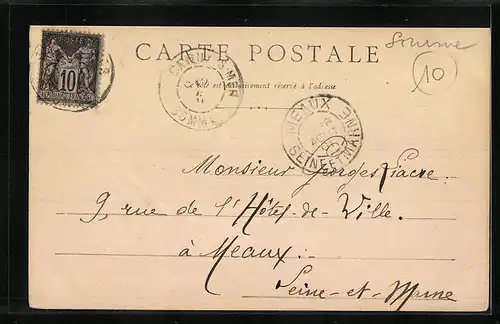 Somme
CARTE POSTALE
10
Ce côté est exclusivement réservé à l'adresse
10
SOMME
MEAUX
SEINE-ET-MARNE
Monsieur Georges Fiacre
9, rue de l'Hôtel-de-Ville.
à Meaux :-
Seine-et-Marne